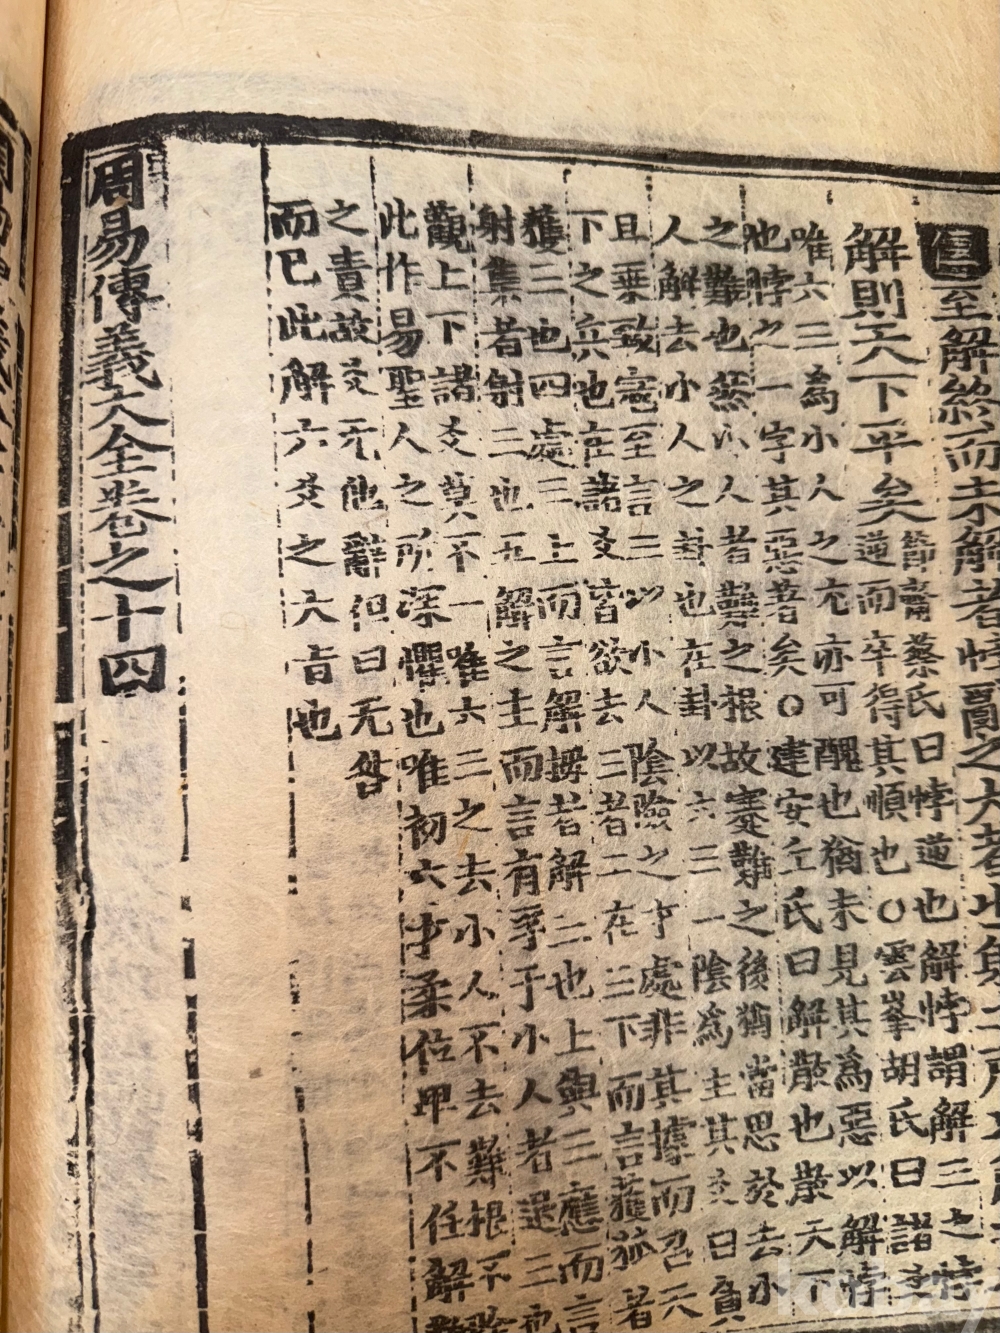 傳至解終而未解者悖亂之大者也
解則天下平矣
節齋蔡氏曰悖逆也解悖謂解三之悖
逆而卒得其順也○雲峯胡氏曰諸爻
唯六三為小人之尤亦可醜也猶未見其為惡以解悖
也悖之一字其惡著矣○建安丘氏曰解散也散天下
之難也然小人者難之根故蹇難之後猶當思於去小
人解去小人之卦也在卦以六三一陰為主其爻曰負
且乗致寇至言三以小人陰險之才處非其據而召天
下之兵也在諸爻皆欲去三者二在三下而言獲狐者
獲三也四處三上而言解拇者解三也上與三應而言
射隼者射三也五解之主而言有孚于小人者退三也
觀上下諸爻莫不一唯六三之去小人不去難根不除
此作易聖人之所深懼也唯初六才柔位卑不任解難
之責故爻无他辭但曰无咎
而已此解六爻之大旨也
周易傳義大全卷之十四